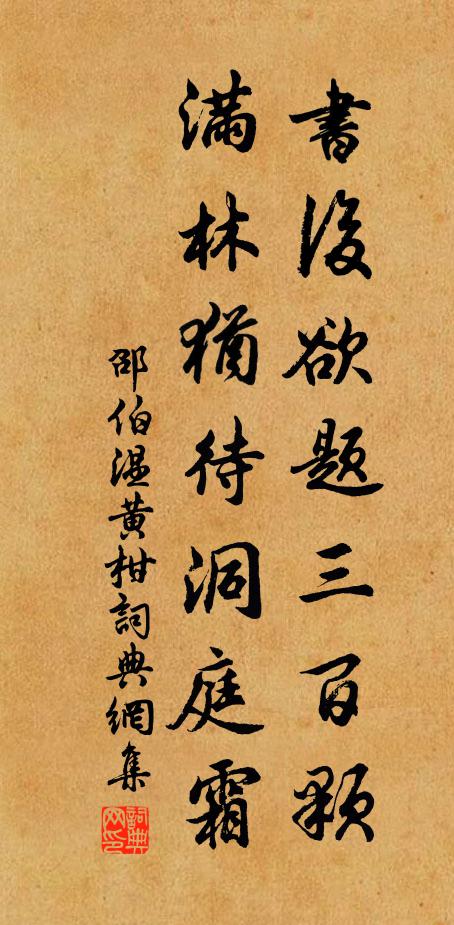 書後欲題三百顆
滿林猶待洞庭霜
邵伯溫黃柑詞典網集
詞典网印